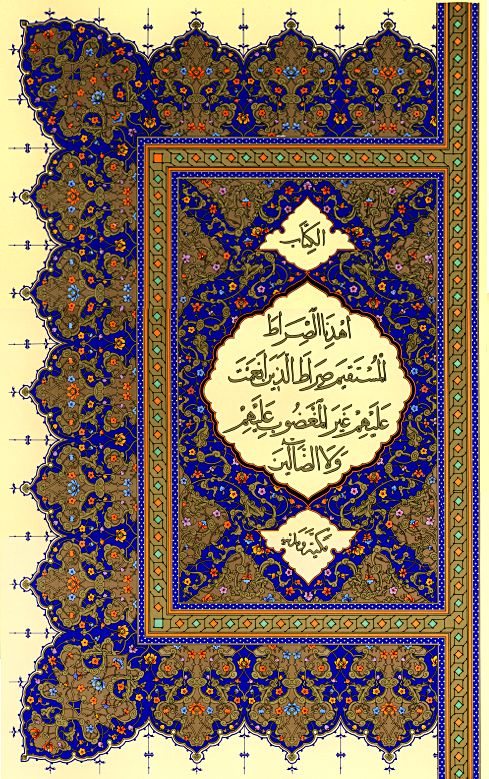 الكِتَاب
اهْدِنَا الصِّرَاطَ
الْمُسْتَقِيمَ صِرَاطَ الَّذِينَ أَنْعَمْتَ
عَلَيْهِمْ غَيْرِ الْمَغْضُوبِ عَلَيْهِمْ
وَلَا الضَّالِّينَ
مكية ومدنية